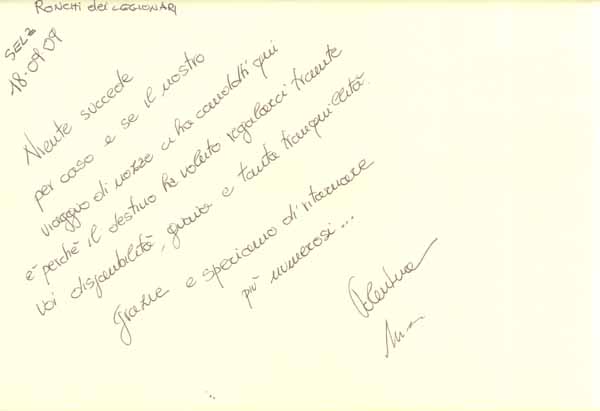 RONCHI dei LEGIONARI
SELZ
18.09.09
Niente succede
per caso e se il nostro
viaggio di nozze ci ha condotti qui
è perchè il destino ha voluto regalarci tramite
voi disponibilità, gioia e tanta tranquillità.
Grazie e speriamo di ritornare
più numerosi...
Valentina